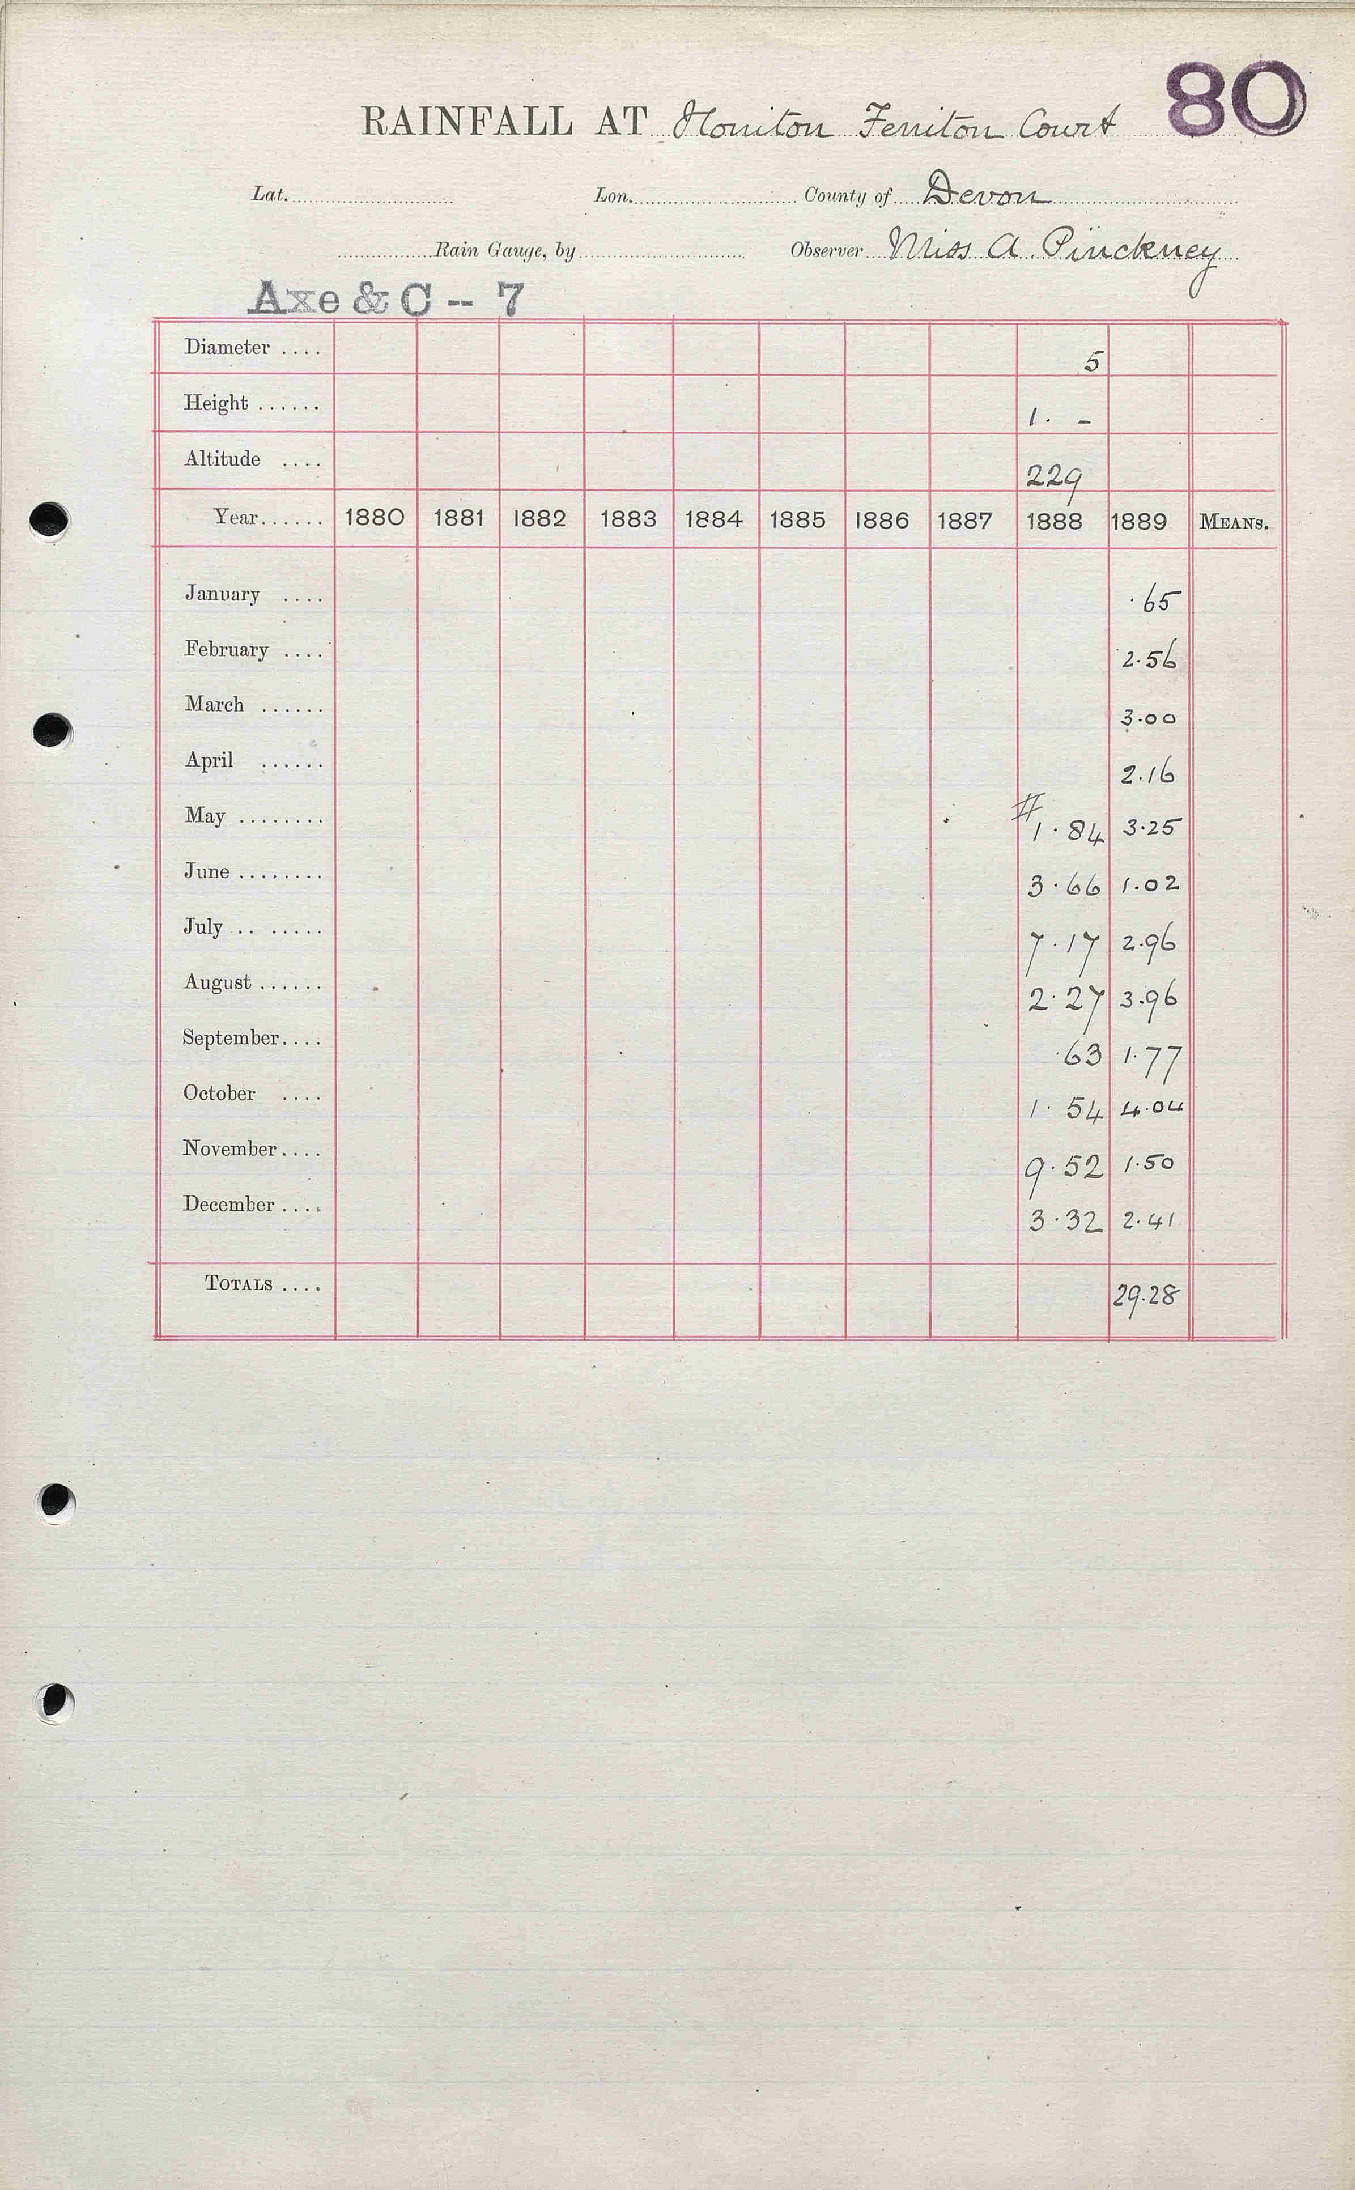 80
RAINFALL AT Honiton Feniton Court
Lat. Lon. County of Devon
Rain Gauge, by Observer Miss A. Pinckney
Axe & C -- 7
Diameter .... 5
Height ...... 1. -
Altitude .... 229
Year...... 1880 1881 1882 1883 1884 1885 1886 1887 1888 1889 MEANS.
January .... .65
February .... 2.56
March ...... 3.00
April ...... 2.16
May ........ # 1.84 3.25
June ........ 3.66 1.02
July .. ..... 7.17 2.96
August ...... 2.27 3.96
September.... .63 1.77
October .... 1.54 4.04
November.... 9.52 1.50
December .... 3.32 2.41
TOTALS .... 29.28